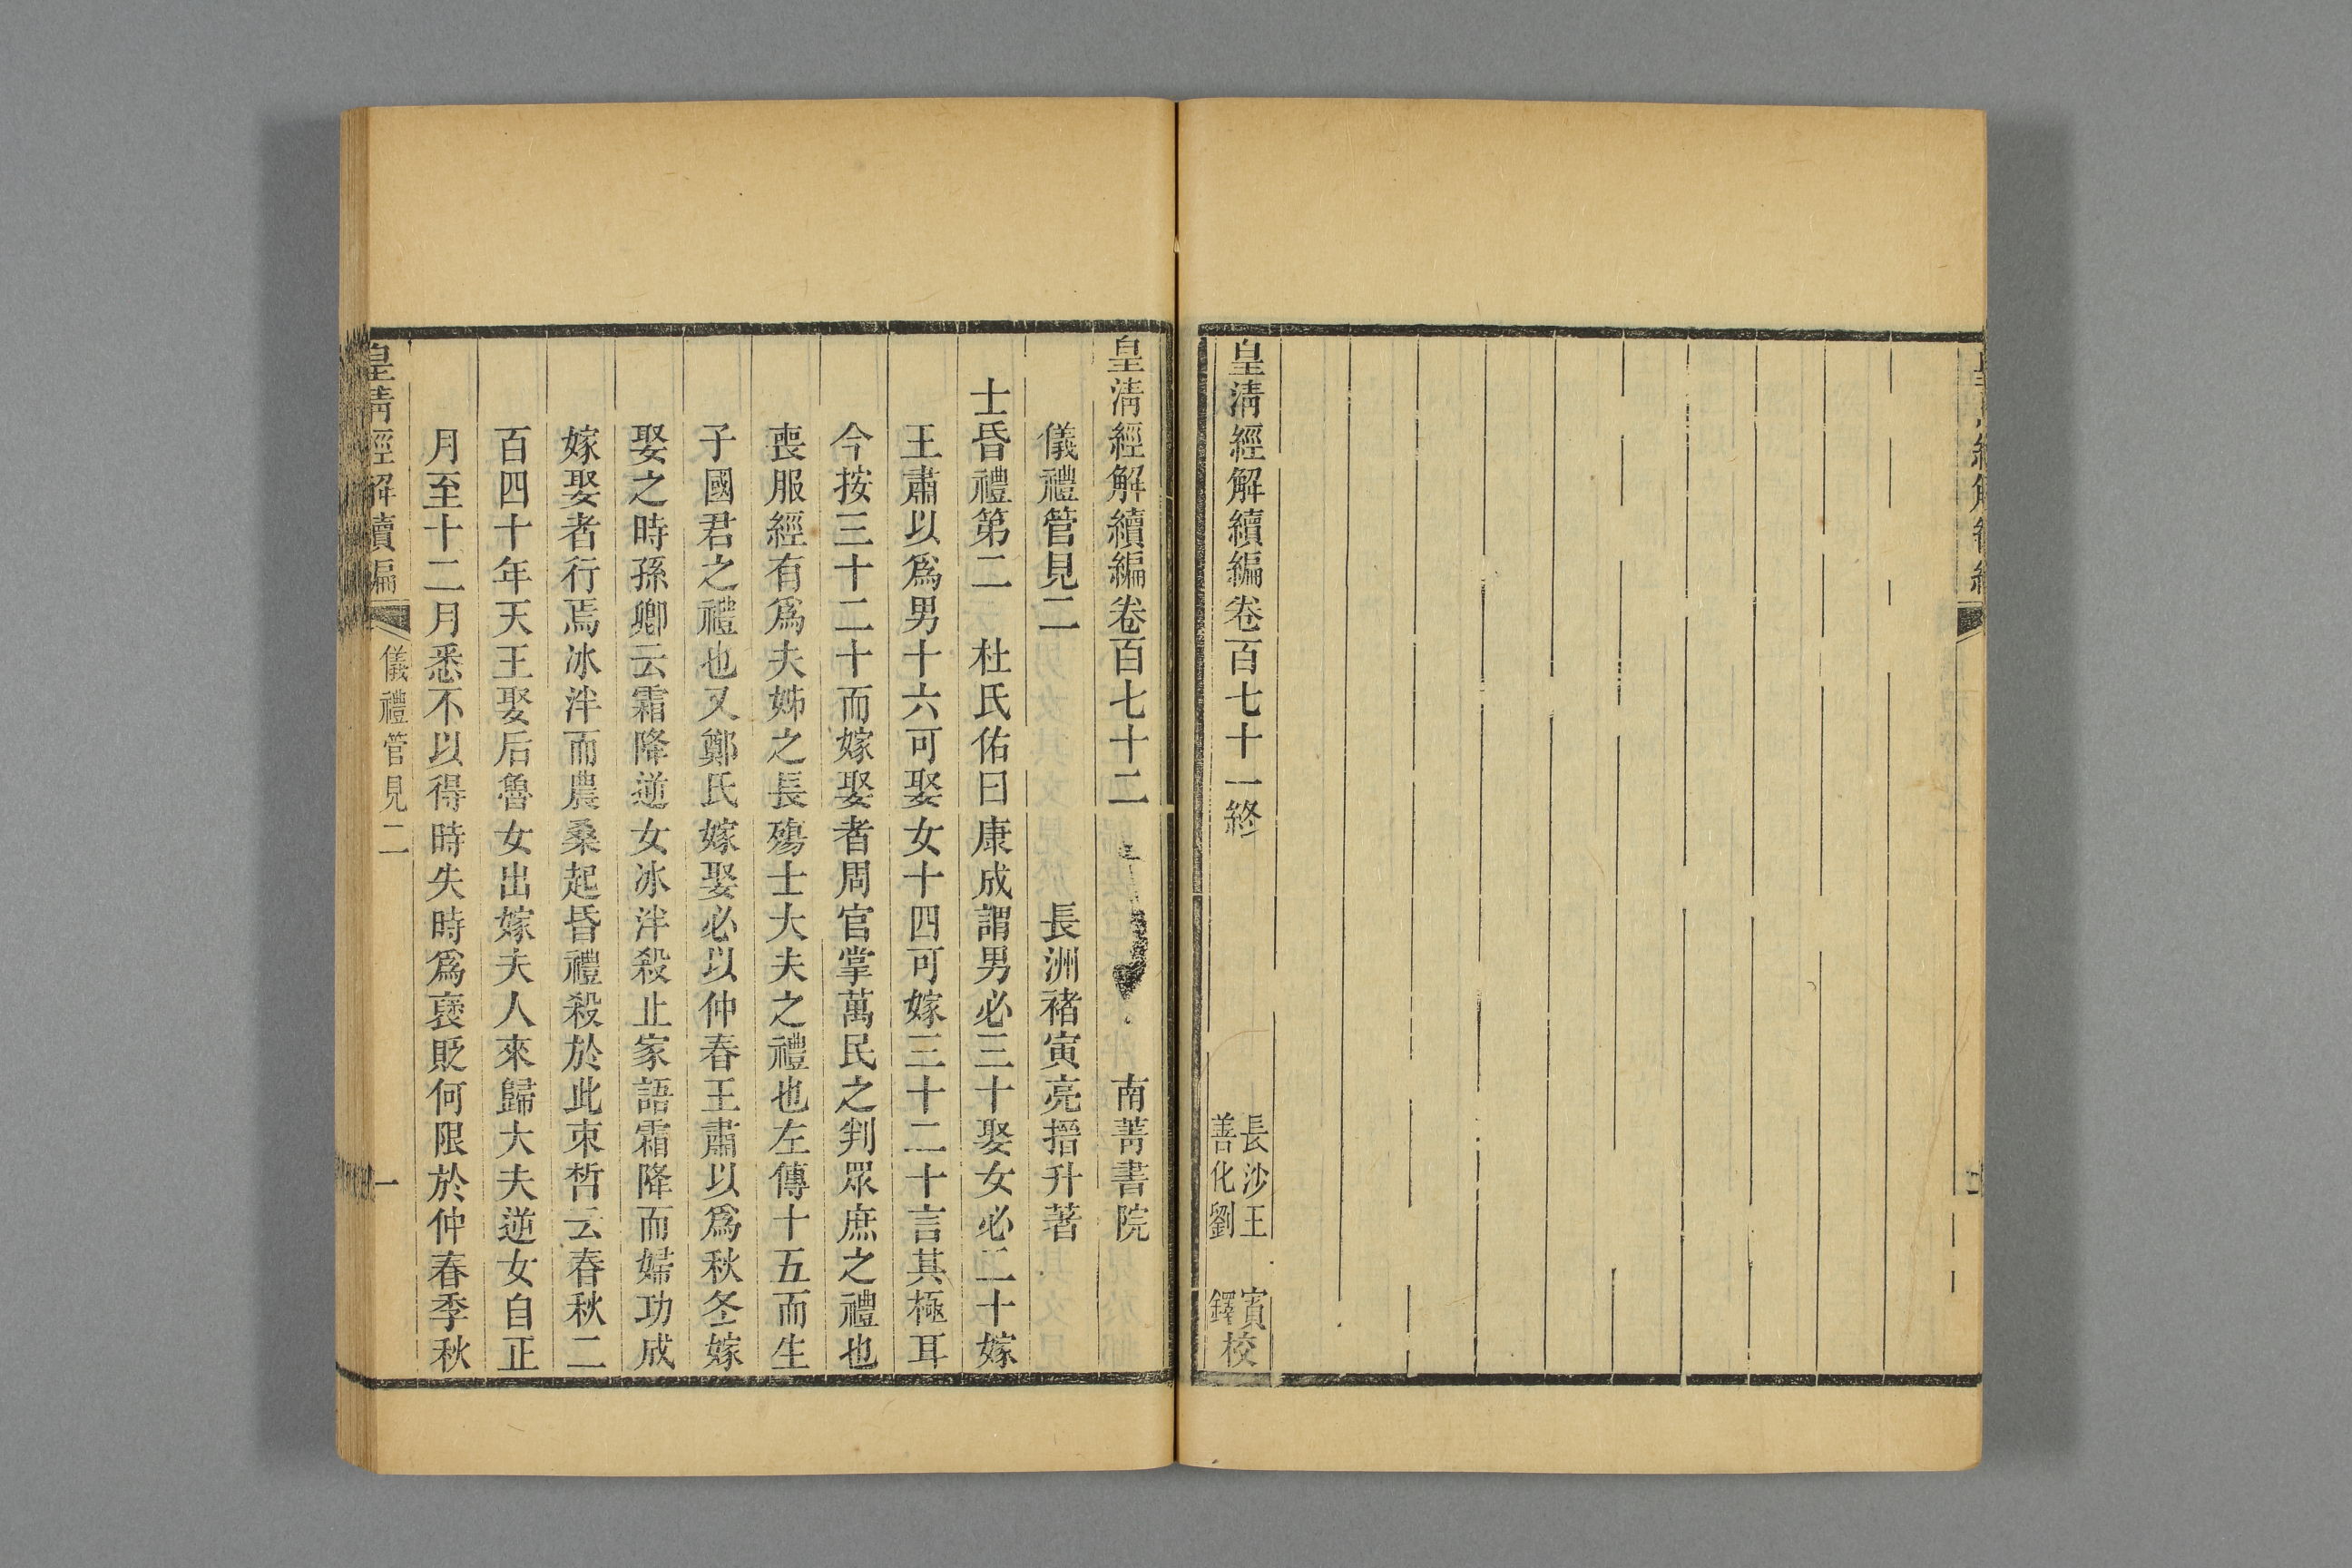 皇清經解續編卷百七十一終
長沙王 賓
善化劉 鐸
校
皇清經解續編卷百七十二 南菁書院
儀禮管見二 長洲褚寅亮搢升著
士昏禮第二 杜氏佑曰康成謂男必三十娶女必二十嫁
王肅以爲男十六可娶女十四可嫁三十二十言其極耳
今按三十二十而嫁娶者周官掌萬民之判眾庶之禮也
喪服經有爲夫姊之長殤士大夫之禮也左傳十五而生
子國君之禮也又鄭氏嫁娶必以仲春王肅以爲秋冬嫁
娶之時孫卿云霜降逆女冰泮殺止家語霜降而婦功成
嫁娶者行焉冰泮而農桑起昏禮殺於此束晳云春秋二
百四十年天王娶后魯女出嫁夫人來歸大夫逆女自正
月至十二月悉不以得時失時爲襃貶何限於仲春季秋
皇清經解續編
儀禮管見二
一